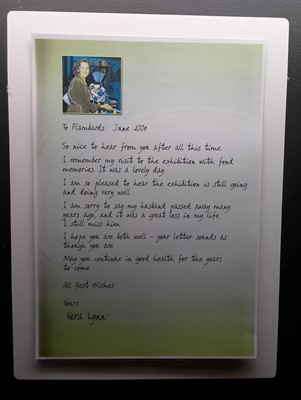 To Flambards June 2009
So nice to hear from you after all this time.
I remember my visit to the exhibition with fond
memories. It was a lovely day.
I am so pleased to hear the exhibition is still going
and doing very well.
I am sorry to say my husband passed away many
years ago, and it was a great loss in my life.
I still miss him.
I hope you are both well - your letter sounds as
though you are.
May you continue in good health for the years
to come.
All Best Wishes
Yours
Vera Lynn